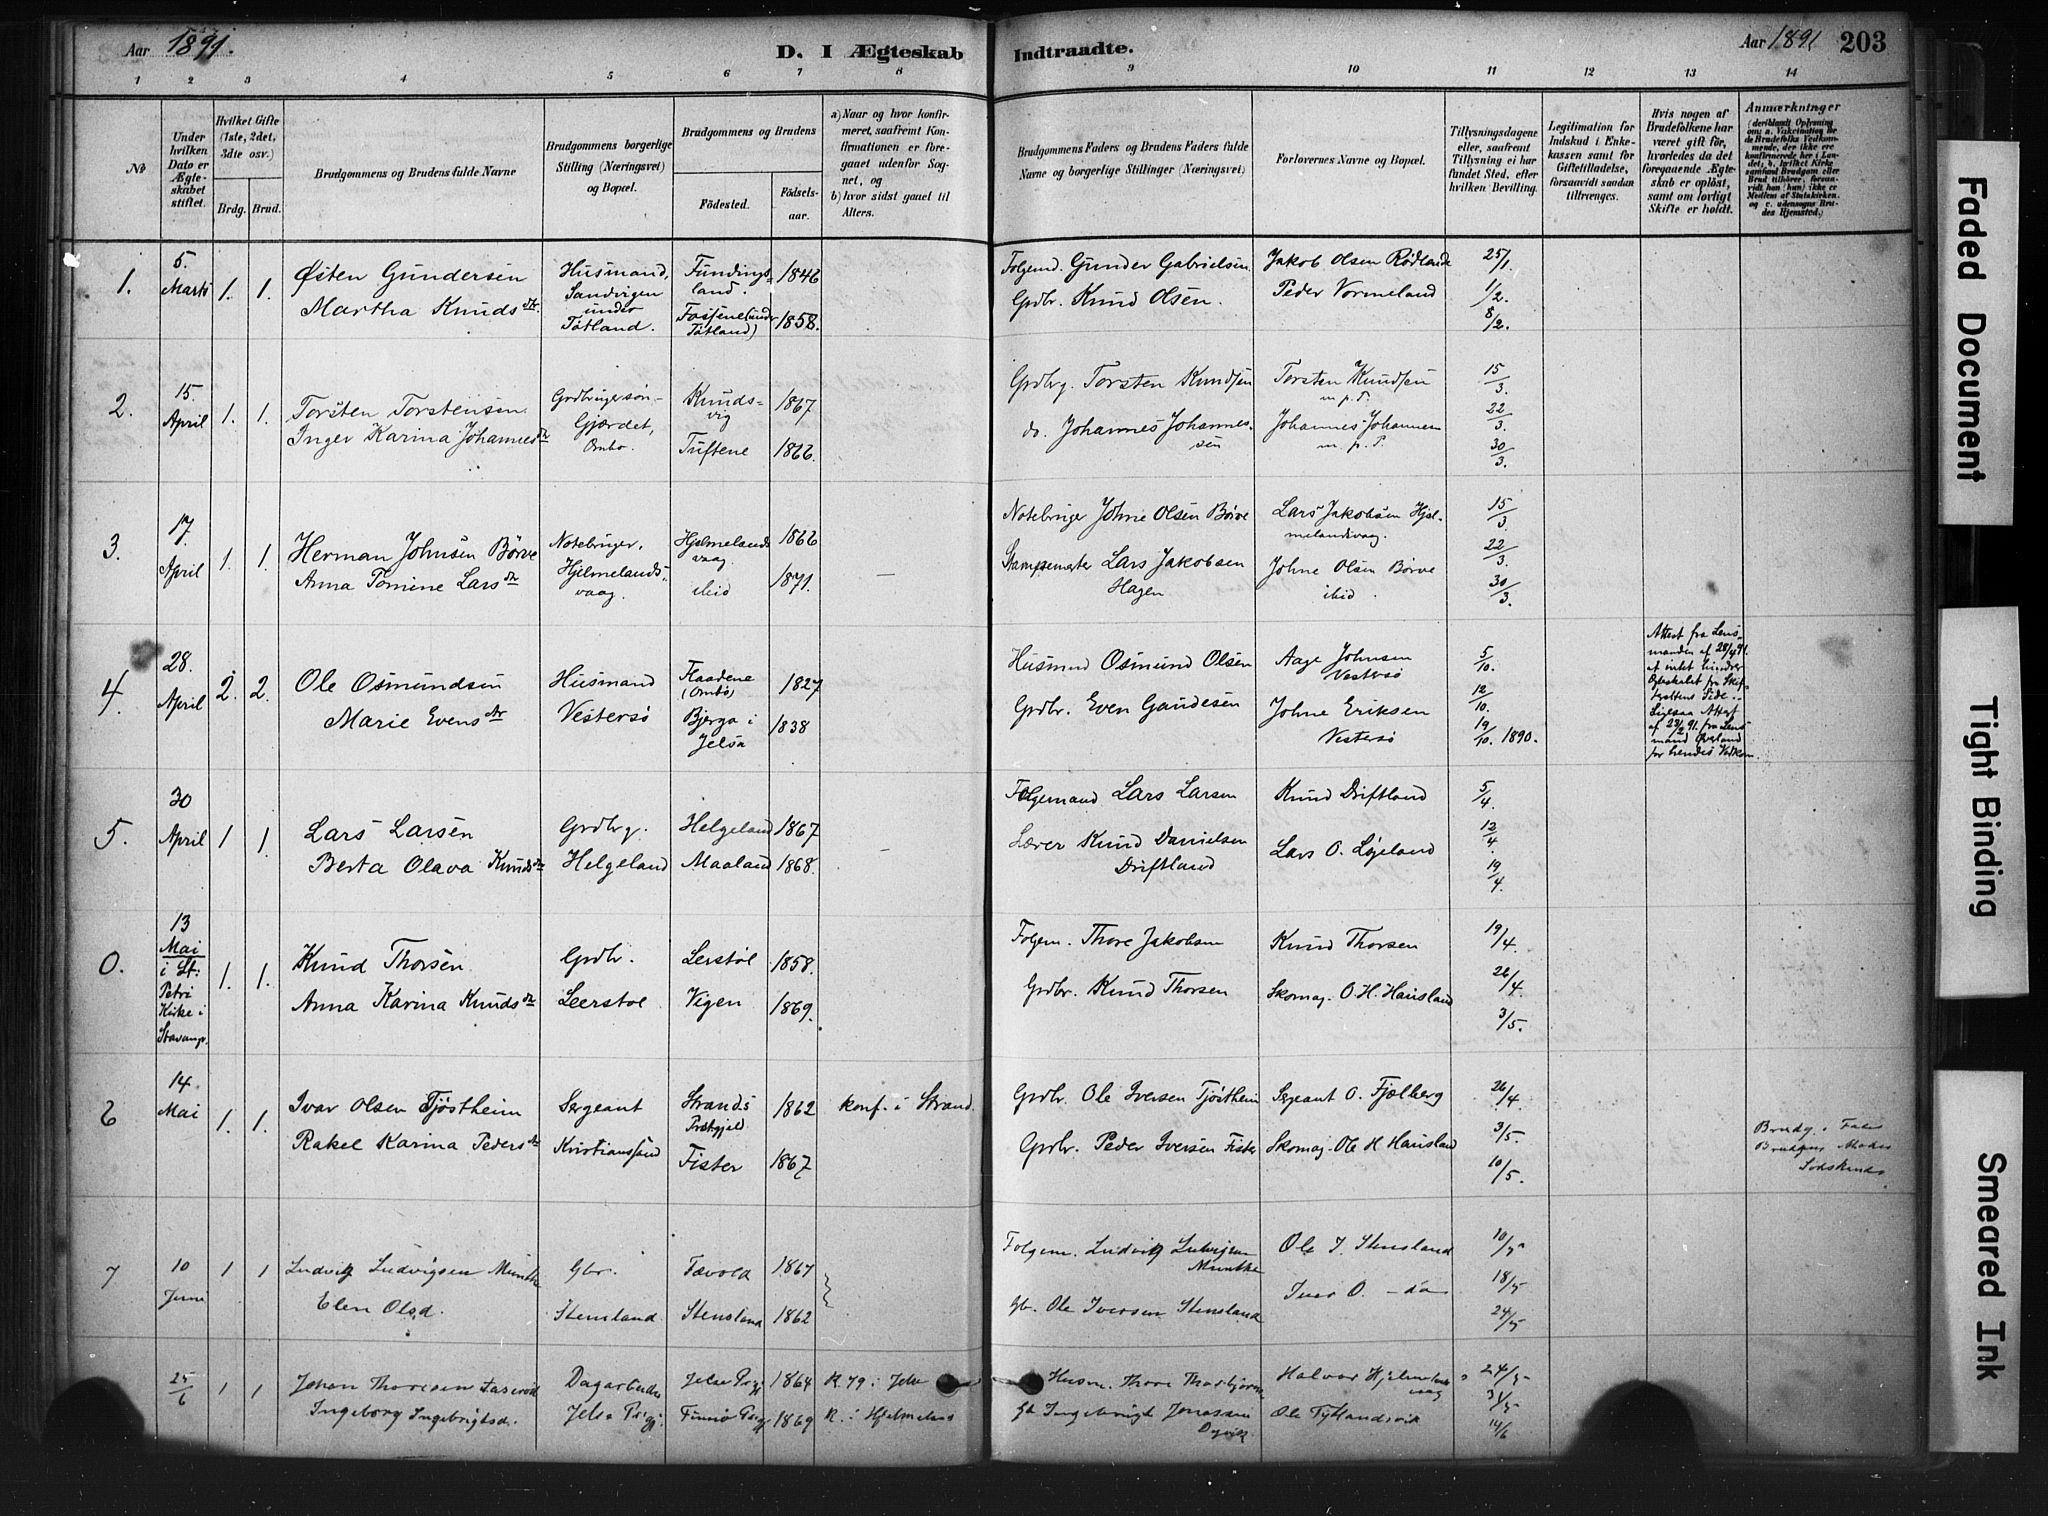 Aar 1891.
D. I Ægteskab Indtraadte.
Aar 1891 203
1 2 3 4 5 6 7 8 9 10 11 12 13 14
No
Under hvilken Dato er Ægteskabet stiftet.
Hvilket Gifte (1ste, 2det, 3dte osv.)
Brdg. Brud.
Brudgommens og Brudens fulde Navne
Brudgommens borgerlige Stilling (Næringsvei) og Bopæl.
Brudgommens og Brudens
Födested.
Födselsaar.
a) Naar og hvor konfirmeret, saafremt Konfirmationen er foregaaet udenfor Sognet, og
b) hvor sidst gaaet til Alters.
Brudgommens Faders og Brudens Faders fulde Navne og borgerlige Stillinger (Næringsvei)
Forlovernes Navne og Bopæl.
Tillysningsdagene eller, saafremt Tillysning ei har fundet Sted, efter hvilken Bevilling.
Legitimation for Indskud i Enkekassen samt for Giftetilladelse, forsaavidt saadan tiltrænges.
Hvis nogen af Brudefolkene har været gift för, hvorledes da det foregaaende Ægteskab er oplöst, samt om lovligt Skifte er holdt.
Anmærkninger (deriblandt Oplysning om: a. Vaccination for de Brudefolks Vedkommende, der ikke ere konfirmerede her i Landet; b. hvilket Kirkesamfund Brudgom eller Brud tilhörer, forsaavidt han (hun) ikke er Medlem af Statskirken, og c. udensogns Brudes Hjemsted.)
1. 5. Marts 1. 1. Østen Gundersen Husmand, Sandvigen under Tøtland. Fundingsland. 1846 Folgemd. Gunder Gabrielsen Jakob Olsen Rödland 25/1.
Martha Knudsdtr. Fossene (under Tøtland) 1858. Grdbr. Knud Olsen. Peder Vormeland 1/2. 8/2.
2. 15. April 1. 1. Torsten Torstensen Grdbrugersøn Gjærdet, Ombo. Knudsvig 1867 Grdbrg. Torsten Knudsen Torsten Knudsen m. p. P. 15/3.
Inger Karina Johannesdtr Tuftene 1866. do. Johannes Johannessen Johannes Johannesen m. p. P. 22/3. 30/3.
3. 17. April 1. 1. Herman Johnsen Börve Notebruger, Hjelmelandsvaag. Hjelmelandsvaag 1866 Notebruger Johne Olsen Börve Lars Jakobsen Hjelmelandsvaag. 15/3.
Anna Tomine Larsdtr ibid 1871. — Stampemester Lars Jakobsen Hagen Johne Olsen Börve ibid. 22/3. 30/3.
4. 28. April 2. 2. Ole Osmundsen Husmand Vestersö Flaadene (Ombö) 1827 Husmand Osmund Olsen Aage Johnsen Vestersö 5/10.
Marie Evensdtr Bjerga i Jelsa 1838 Grdbr. Even Gaudesen Johne Eriksen Vestersö 12/10. 19/10. 1890.
Attest fra Lensmanden af 28/4 91. at intet hindrer Ægteskabet fra Skifterettens Side. Ligesaa Attest af 23/2 91. fra Lensmand for hendes Vedkom.
5. 30 April 1 1. Lars Larsen Grdbrg. Helgeland Helgeland 1867 Folgemand Lars Larsen Knud Driftland 5/4.
Berta Olava Knudsdtr Maaland 1868. — Lærer Knud Danielsen Driftland Lars O. Løjeland 12/4. 19/4.
0. 13 Mai i St: Petri Kirke i Stavanger. 1. 1. Knud Thorsen Grdbr. Leerstol Lerstöl 1858. Folgem. Thore Jakobsen Knud Thorsen 19/4.
Anna Karina Knudsdtr Vigen 1869. Grdbr. Knud Thorsen Skomag. O. H. Hausland 26/4. 3/5.
6 14 Mai 1. 1. Ivar Olsen Tjöstheim Sergeant Kristianssand Strands Præstgjeld 1862 konf. i Strand. Grdbr. Ole Iversen Tjöstheim Sergeant O. Fjelberg 26/4.
Rakel Karina Pedersdtr Fister 1867 Grdbr. Peder Iversen Fister Skomag. Ole H. Hausland 3/5. 10/5.
Brudg. s Fader Brudens Moder Sødskende
7 10 Juni 1 1 Ludvig Ludvigsen Munthe Gbr. Stensland. Tævold 1867 Folgem. Ludvig Ludvigsen Munthe Ole I. Stensland 10/5
Elen Olsd. Stensland 1862 Gb. Ole Iversen Stensland Iver O. — do 18/5 24/5
25/6 1 1 Johan Thoresen Dagarbeider Jelse Prgj. Jelse Prgj 1864 K. 79 i Jelse Husm. Thore Thorbjörns Halvor Hjelmelandsvaag 24/5
Ingeborg Ingebrigtsd. Finnö Prgj 1869 K. i Hjelmeland Gb Ingebrigt Jonassen Dyvik Ole Tytlandsvik 31/5 14/6
Faded Document
Tight Binding
Smeared Ink